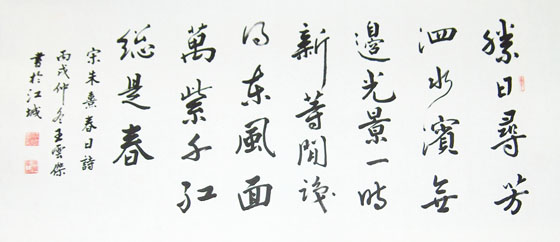 勝日尋芳
泗水濱無
邊光景一時
新等閒識
得东風面
萬紫千红
総是春
宋朱熹春日詩
丙戌仲冬王雲傑
書於江城